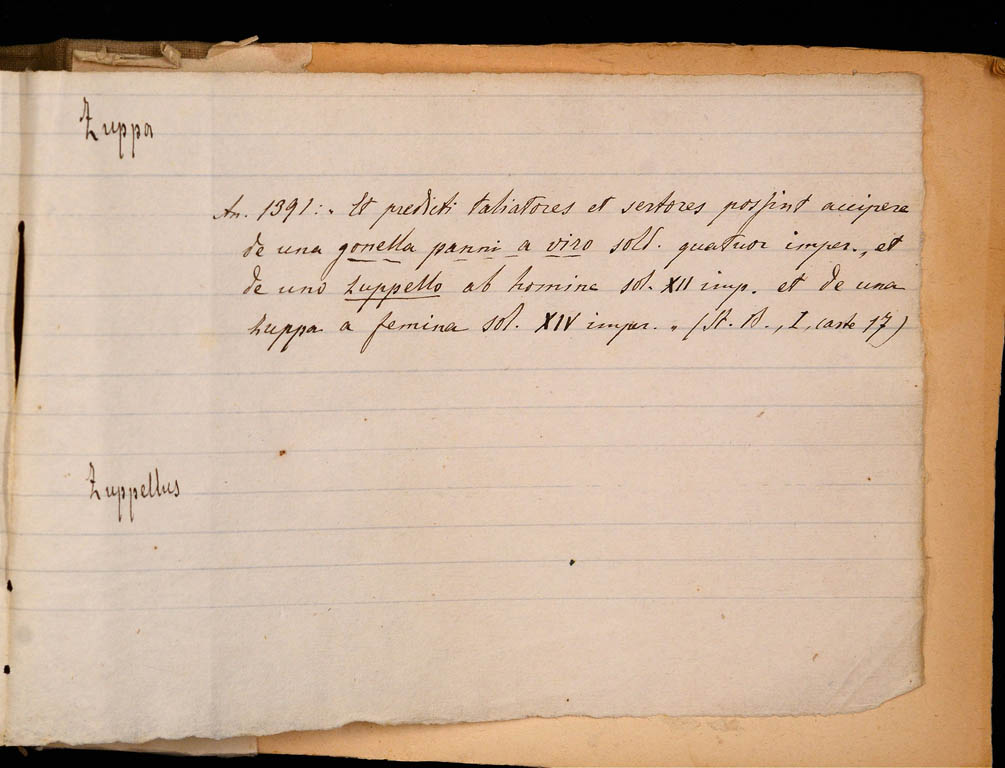 Zuppa
An. 1391: " Et predicti taliatores et sertores possint accipere
de una gonella panni a viro sold. quatuor imper., et
de uno zuppello ab homine sol. XII imp. et de una
zuppa a femina sol. XIV imper. " (St. B., I, carte 17)
Zuppellus